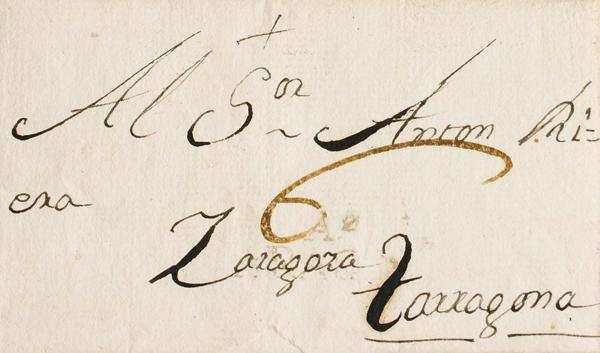 +
Al S.or Anton Ri=
era
6
Zaragoza
tarragona